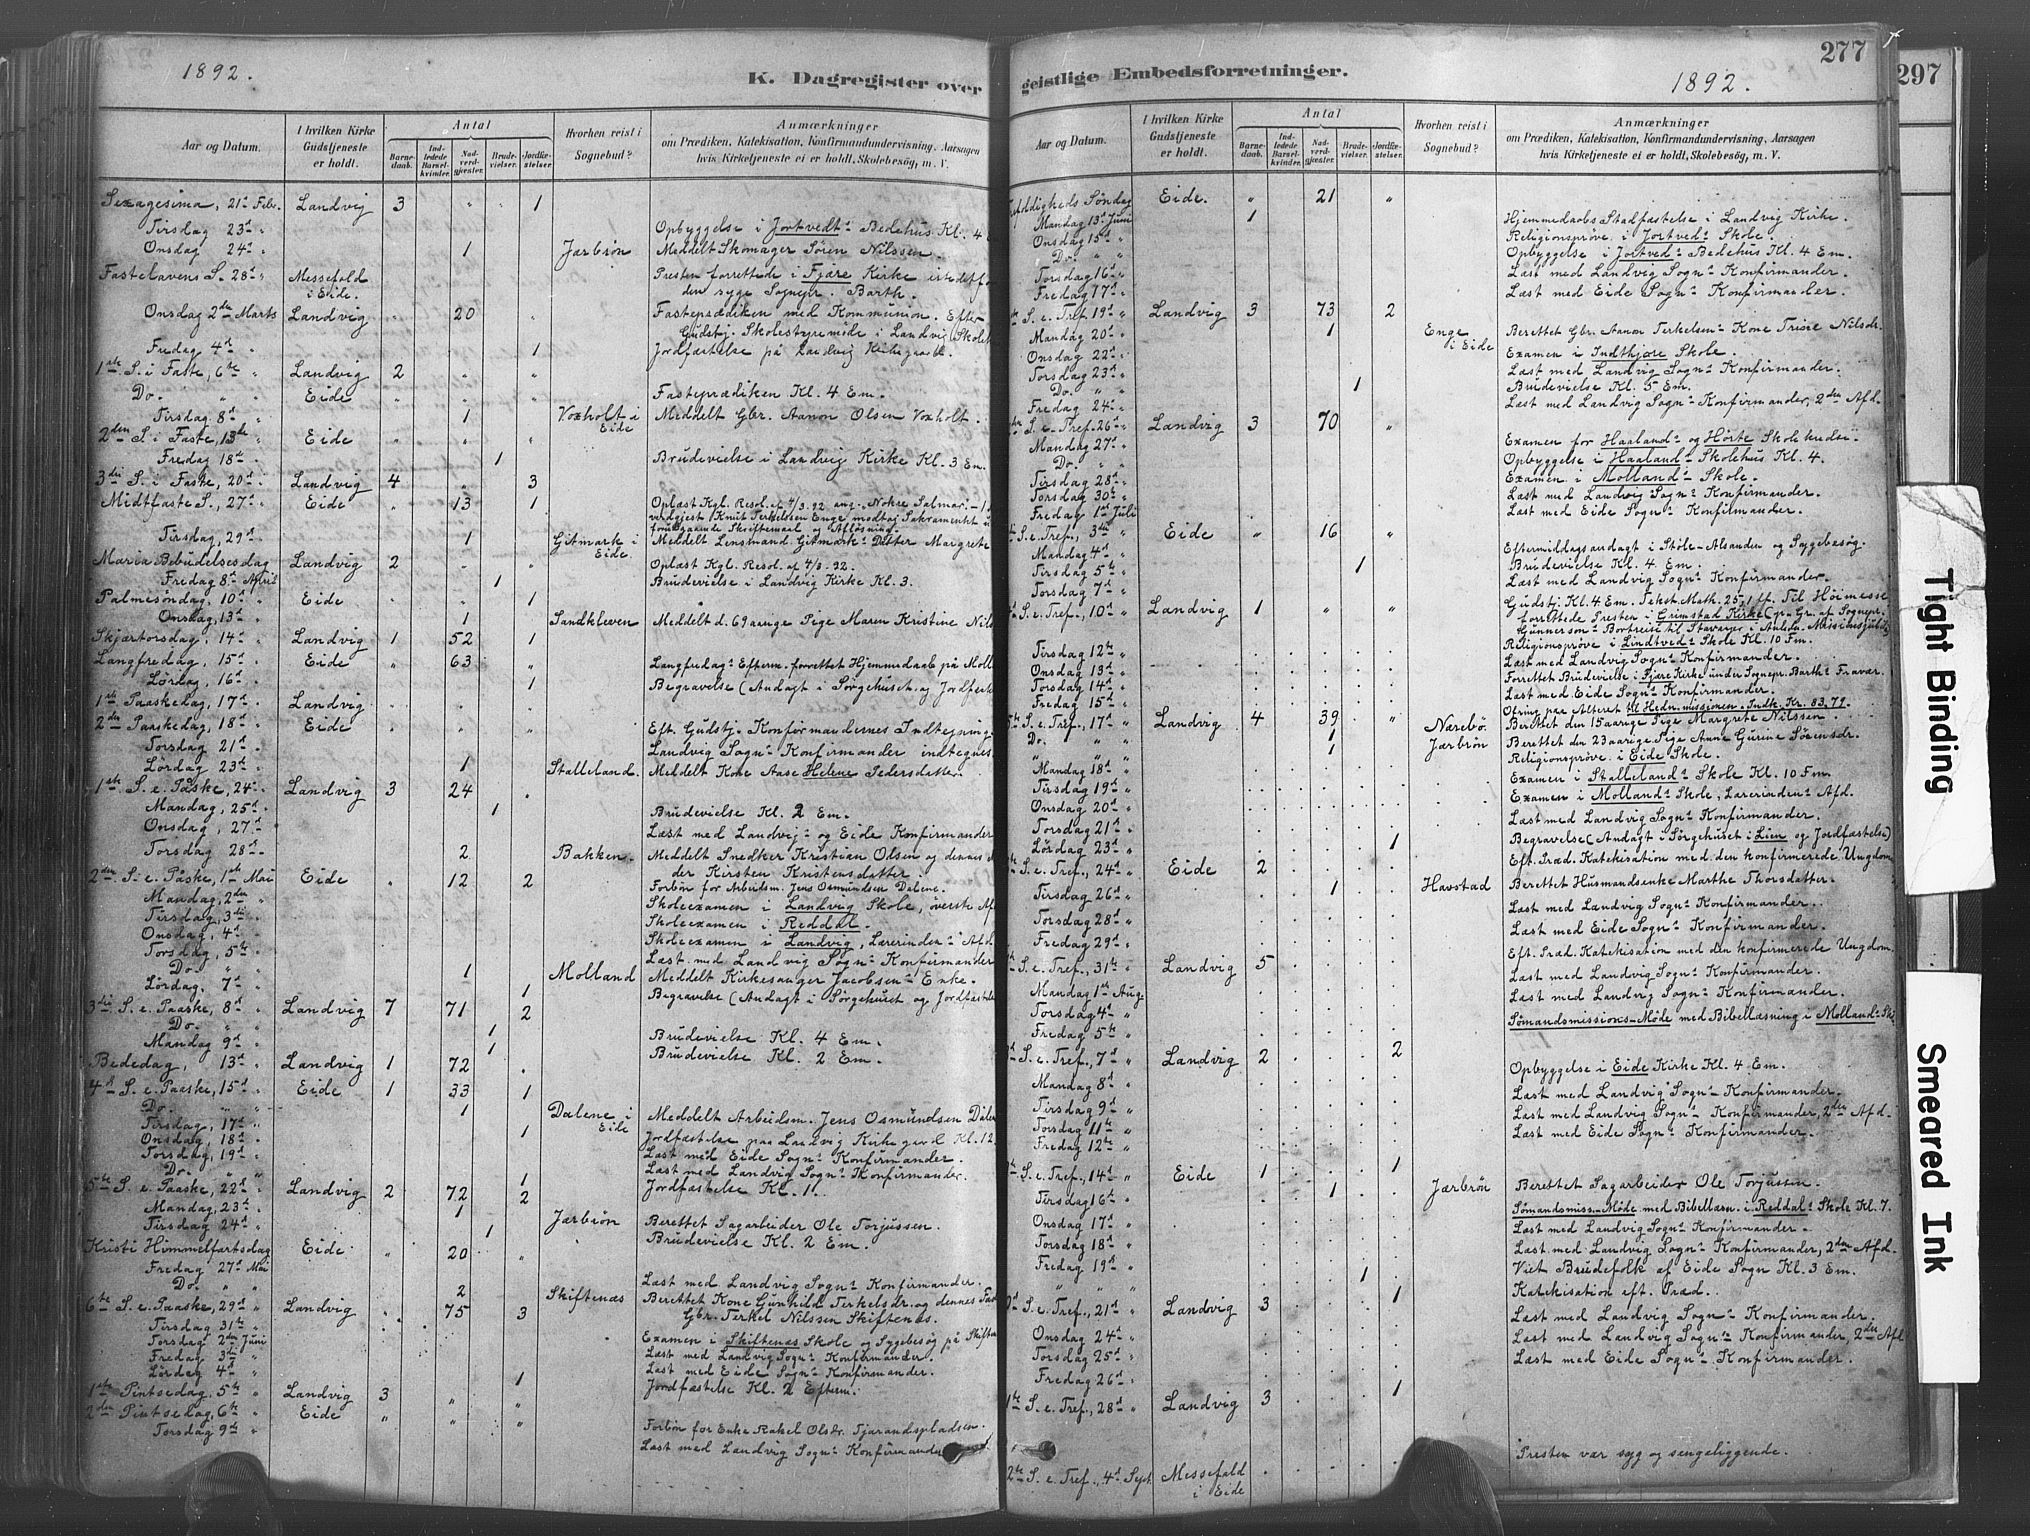 1892.
K. Dagregister over
Aar og Datum.
I hvilken Kirke Gudstjeneste er holdt.
Antal
Barne-daab.
Ind-ledede Barsel-kvinder.
Nad-verd-gjæster.
Brude-vielser.
Jordfæ-stelser.
Hvorhen reist i Sognebud?
Anmærkninger
om Prædiken, Katekisation, Konfirmandundervisning, Aarsagen
hvis Kirketjeneste ei er holdt, Skolebesög, m. V.
Sexagesima, 21de Febr. Landvig 3 " " 1
Tirsdag 23d " Opbyggelse i Jortvedts Bedehus Kl. 4
Onsdag 24d " 1 Jærbrön Meddelt Skomager Sören Nilssen.
Fastelavens S. 28d " Messefald Presten forrettede i Fjære Kirke istedetfor
i Eide. den syge Sognepr. Barth.
Onsdag 2den Marts Landvig " 20 " Fasteprædiken med Kommunion. Efter
Gudstj. Skolestyremöde i Landvig Skole
Fredag 4d " 1 Jordfæstelse på Landvig Kirkegaard.
1ste S. i Faste, 6te " Landvig 2 " "
Do. " " Eide " " " Fasteprædiken Kl. 4 Em.
Tirsdag 8d " 1 Voxholt i Eide Meddelt Gbr. Aanon Olsen Voxholt.
2den S. i Faste, 13de " Eide " " "
Fredag 18d " 1 Brudevielse i Landvig Kirke Kl. 3 Em.
3die S. i Faste, 20d " Landvig 4 " 3
Midtfaste S., 27d " Eide " 13 1 Oplæst Kgl. Resol. af 4/3 92 ang. Nokre Salmar. – 1
verdgjest Knut Terkelssen Enge modtog Sakramentet u
foruden Skriftemaal og Aflösning.
Tirsdag, 29d " 1 Gitmark i Eide. Meddelt Lensmand Gitmarks Datter Margrete
Maria Bebudelsesdag Landvig 2 " " Oplæst Kgl. Resol. af 4/3. 92.
Fredag 8d April 1 Brudevielse i Landvig Kirke Kl. 3.
Palmesöndag, 10d " Eide " " 1
Onsdag, 13d " 1 Sandkleven Meddelt d. 69 aarige Pige Maren Kristine Nils
Skjærtorsdag, 14d " Landvig 1 52 1
Langfredag, 15d " Eide " 63 " Langfredag Efterm. forrettet Hjemmedaab på Moll
Lördag, 16d " 1 Begravelse (Andagt i Sörgehuset og Jordfæst
1ste Paaskedag, 17d " Landvig . . .
2den Paaskedag, 18d " Eide " " " Eft. Gudstj. Konfirmandernes Indtegning
Torsdag 21d " Landvig Sogns Konfirmander indtegnes
Lördag 23d " 1 Stalleland. Meddelt Kone Aase Helene Pedersdatter.
1ste S. e. Påske, 24d " Landvig 3 24 .
Mandag, 25d " 1 Brudevielse Kl. 2 Em.
Onsdag, 27d " Læst med Landvig- og Eide Konfirmander
Torsdag 28d " 2 Bakken. Meddelt Snedker Kristian Olsen og dennes
der Kirsten Kristensdatter.
2den S. e. Påske, 1ste Mai Eide " 12 2 Forbön for Arbeidsm. Jens Osmundsen Dalene.
Mandag, 2den " Skoleexamen i Landvig Skole, överste Af
Tirsdag, 3die " Skoleexamen i Reddal.
Onsdag, 4d " Skoleexamen i Landvig, Lærerindens Afd
Torsdag, 5te " Læst med Landvig Sogns Konfirmander
Do " " 1 Molland Meddelt Kirkesanger Jacobsens Enke.
Lördag, 7d " 1 Begravelse (Andagt i Sörgehuset og Jordfæstel
3die S. e. Paaske, 8d " Landvig 7 71 2
Do. " " 1 Brudevielse Kl. 4 Em.
Mandag 9d " 1 Brudevielse Kl. 2 Em.
Bededag, 13d " Landvig 1 72 .
4d S. e. Paaske, 15d " Eide 1 33 1
Do. " " 1 Dalene i Eide Meddelt Arbeidsm. Jens Osmundsen Dalen
Tirsdag, 17d " 1 Jordfæstelse paa Landvig Kirkegaard Kl. 12
Onsdag, 18d " Læst med Eide Sogns Konfirmander.
Torsdag, 19d " Læst med Landvig Sogns Konfirmander.
Do. " " 1 Jordfæstelse Kl. 11.
5te S. e. Paaske, 22d " Landvig 2 72 2
Mandag, 23d " 1 Jærbrön Berettet Sagarbeider Ole Torjussen.
Tirsdag 24d " 1 Brudevielse Kl. 2 Em.
Kristi Himmelfartsdag Eide " 20 "
Fredag 27d Mai Læst med Landvig Sogns Konfirmander.
Do " " 2 Skiftenæs Berettet Kone Gunhild Terkelsdr. og dennes Fad
6te S. e. Paaske, 29d " Landvig . 75 3 Gbr. Terkel Nilssen Skiftenæs.
Tirsdag 31te " Examen i Skiftenæs Skole og Sygebesög på Skiften
Torsdag 2den Juni Læst med Landvig Sogns Konfirmander.
Fredag 3die " Læst med Eide Sogns Konfirmander.
Lördag 4d " 1 Jordfæstelse Kl. 2 Efterm.
1ste Pintsedag, 5te " Landvig 3 " "
2den Pintsedag, 6te " Eide " " " Forbön for Enke Rakel Olsdr. Tjærandspladsen.
Torsdag 9de " Læst med Landvig Sogns Konfirmander
277
297
geistlige Embedsforretninger.
1892.
Aar og Datum.
I hvilken Kirke Gudstjeneste er holdt.
Antal
Barne-daab.
Ind-ledede Barsel-kvinder.
Nad-verd-gjæster.
Brude-vielser.
Jordfæ-stelser.
Hvorhen reist i Sognebud?
Anmærkninger
om Prædiken, Katekisation, Konfirmandundervisning, Aarsagen
hvis Kirketjeneste ei er holdt, Skolebesög, m. V.
efoldigheds Söndag Eide. " 21 "
Mandag 13d Juni 1 Hjemmedaabs Stadfæstelse i Landvig Kirke.
Onsdag 15d " Religionspröve i Jortveds Skole.
Do. " " Opbyggelse i Jortveds Bedehus Kl. 4 Em.
Torsdag 16d " Læst med Landvig Sogns Konfirmander.
Fredag 17d " Læst med Eide Sogns Konfirmander.
S. e. Tref. 19d " Landvig 3 73 2
Mandag 20d " 1 Enge i Eide Berettet Gbr. Aanon Terkelsens Kone Triøe Nilsdr.
Onsdag 22d " Examen i Indthjøre Skole.
Torsdag 23d " Læst med Landvig Sogns Konfirmander.
Do. " " 1 Brudevielse Kl. 5 Em.
Fredag 24d " Læst med Landvig Sogns Konfirmander, 2den Afd.
S. e. Tref. 26d " Landvig 3 70 "
Mandag 27d " Examen for Haalands og Hörte Skolekredse.
Do. " " Opbyggelse i Haalands Skolehus Kl. 4.
Tirsdag 28d " Examen i Mollands Skole.
Torsdag 30te " Læst med Landvig Sogns Konfirmander.
Fredag 1ste Juli Læst med Eide Sogns Konfirmander.
S. e. Tref., 3die " Eide " 16 "
Mandag 4d " Eftermiddagsandagt i Stöle-Alsanden og Sygebesög.
Tirsdag 5te " 1 Brudevielse Kl. 4 Em.
Torsdag 7d " Læst med Landvig Sogns Konfirmander.
S. e. Tref., 10d " Landvig 1 " " Gudstj. Kl. 4 Em. Tekst. Math. 25, 1 ff. Til Höimesse
forrettede Presten i Grimstad Kirke (pr. Gr. af Sognepr.
Gunnersons Bortreise til Stavanger i Anledn. Missionsjubil
Tirsdag 12te " Religionspröve i Lindtveds Skole Kl. 10 Fm.
Onsdag 13d " Læst med Landvig Sogns Konfirmander.
Torsdag 14d " Forrettet Brudevielse i Fjære Kirke under Sognepr. Barths Fravær.
Fredag 15d " Læst med Eide Sogns Konfirmander.
5te S. e. Tref., 17d " Landvig 4 39 " Ofring paa Alteret til Hedn. missionen. Indk. Kr. 83,79.
Do. " " 1 Nærebö. Berettet den 15 aarige Pige Margrete Nilssen.
" " " 1 Jærbrön Berettet den 23 aarige Pige Anne Gurine Sörensdr.
Mandag 18d " Religionspröve i Eide Skole.
Tirsdag 19d " Examen i Stallelands Skole Kl. 10 Fm.
Onsdag 20d " Examen i Mollands Skole, Lærerindens Afd.
Torsdag 21d " Læst med Landvig Sogns Konfirmander.
Lördag 23d " 1 Begravelse (Andagt i Sörgehuset i Lien og Jordfæstelse)
S. e. Tref., 24d " Eide 2 Eft. Præd. Katekisation med den konfirmerede Ungdom
Tirsdag 26d " 1 Havstad Berettet Husmandsenke Marthe Thorsdatter.
Torsdag 28d " Læst med Landvig Sogns Konfirmander.
Fredag 29d " Læst med Eide Sogns Konfirmander.
S. e. Tref., 31te " Landvig 5 Eft. Præd. Katekisation med den konfirmerede Ungdom.
Mandag 1ste Aug. Læst med Landvig Sogns Konfirmander.
Torsdag 4d " Læst med Landvig Sogns Konfirmander.
Fredag 5te " Sömandsmissions-Möde med Bibellæsning i Mollands Sk
S. e. Tref., 7d " Landvig 2 . 2
Mandag 8d " Opbyggelse i Eide Kirke Kl. 4 Em.
Tirsdag 9d " Læst med Landvig Sogns Konfirmander.
Torsdag 11te " Læst med Landvig Sogns Konfirmander, 2den Afd.
Fredag 12te " Læst med Eide Sogns Konfirmander.
S. e. Tref., 14d " Eide 1 . 1
Tirsdag 16d " 1 Jærbrön Berettet Sagarbeider Ole Torjussen.
Onsdag 17d " Sömandsmiss.-Möde med Bibellæsn. i Reddals Skole Kl. 7.
Torsdag 18d " Læst med Landvig Sogns Konfirmander.
Fredag 19d " Læst med Landvig Sogns Konfirmander, 2den Afd.
" " " 1 Viet Brudefolk af Eide Sogn Kl. 3 Em.
S. e. Tref., 21d " Landvig 3 . 1 Katekisation eft. Præd.
Onsdag 24d " Læst med Landvig Sogns Konfirmander.
Torsdag 25d " Læst med Landvig Sogns Konfirmander, 2den Afd
Fredag 26d " Læst med Eide Sogns Konfirmander.
S. e. Tref., 28d " Landvig 3 . 1
S. e. Tref., 4d Sept. Messefald i Eide Presten var syg og sengeliggende.
Tight Binding
Smeared Ink